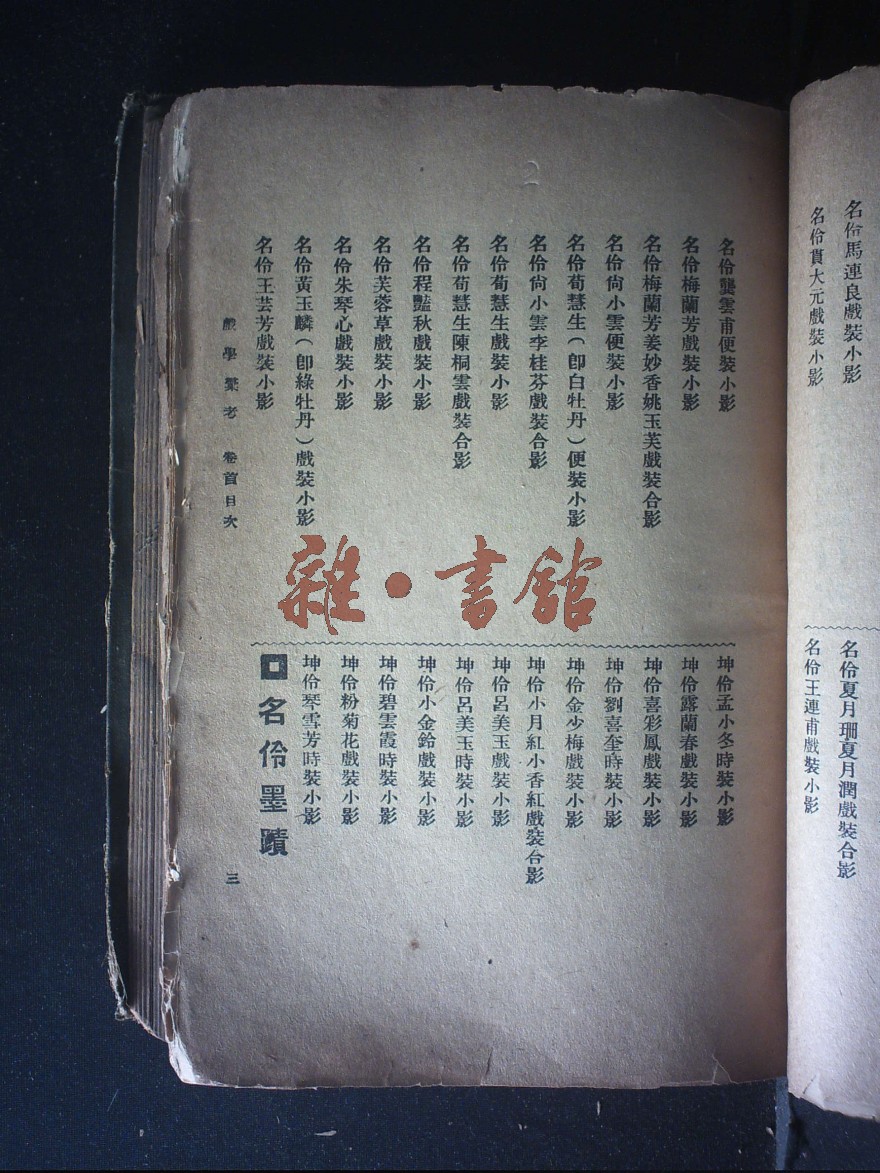 名伶馬連良戲裝小影
名伶貫大元戲裝小影
名伶夏月珊夏月潤戲裝合影
名伶王連甫戲裝小影
名伶龔雲甫便裝小影
名伶梅蘭芳戲裝小影
名伶梅蘭芳姜妙香姚玉芙戲裝合影
名伶尙小雲便裝小影
名伶荀慧生(卽白牡丹)便裝小影
名伶尙小雲李桂芬戲裝合影
名伶荀慧生戲裝小影
名伶荀慧生陳桐雲戲裝合影
名伶程豔秋戲裝小影
名伶芙蓉草戲裝小影
名伶朱琴心戲裝小影
名伶黃玉麟(卽綠牡丹)戲裝小影
名伶王芸芳戲裝小影
坤伶孟小冬時裝小影
坤伶露蘭春戲裝小影
坤伶喜彩鳳戲裝小影
坤伶劉喜奎時裝小影
坤伶金少梅戲裝小影
坤伶小月紅小香紅戲裝合影
坤伶呂美玉戲裝小影
坤伶呂美玉時裝小影
坤伶小金鈴戲裝小影
坤伶碧雲霞時裝小影
坤伶粉菊花戲裝小影
坤伶琴雪芳時裝小影
名伶墨蹟
戲學彙考 卷首目次 三
雜·書館